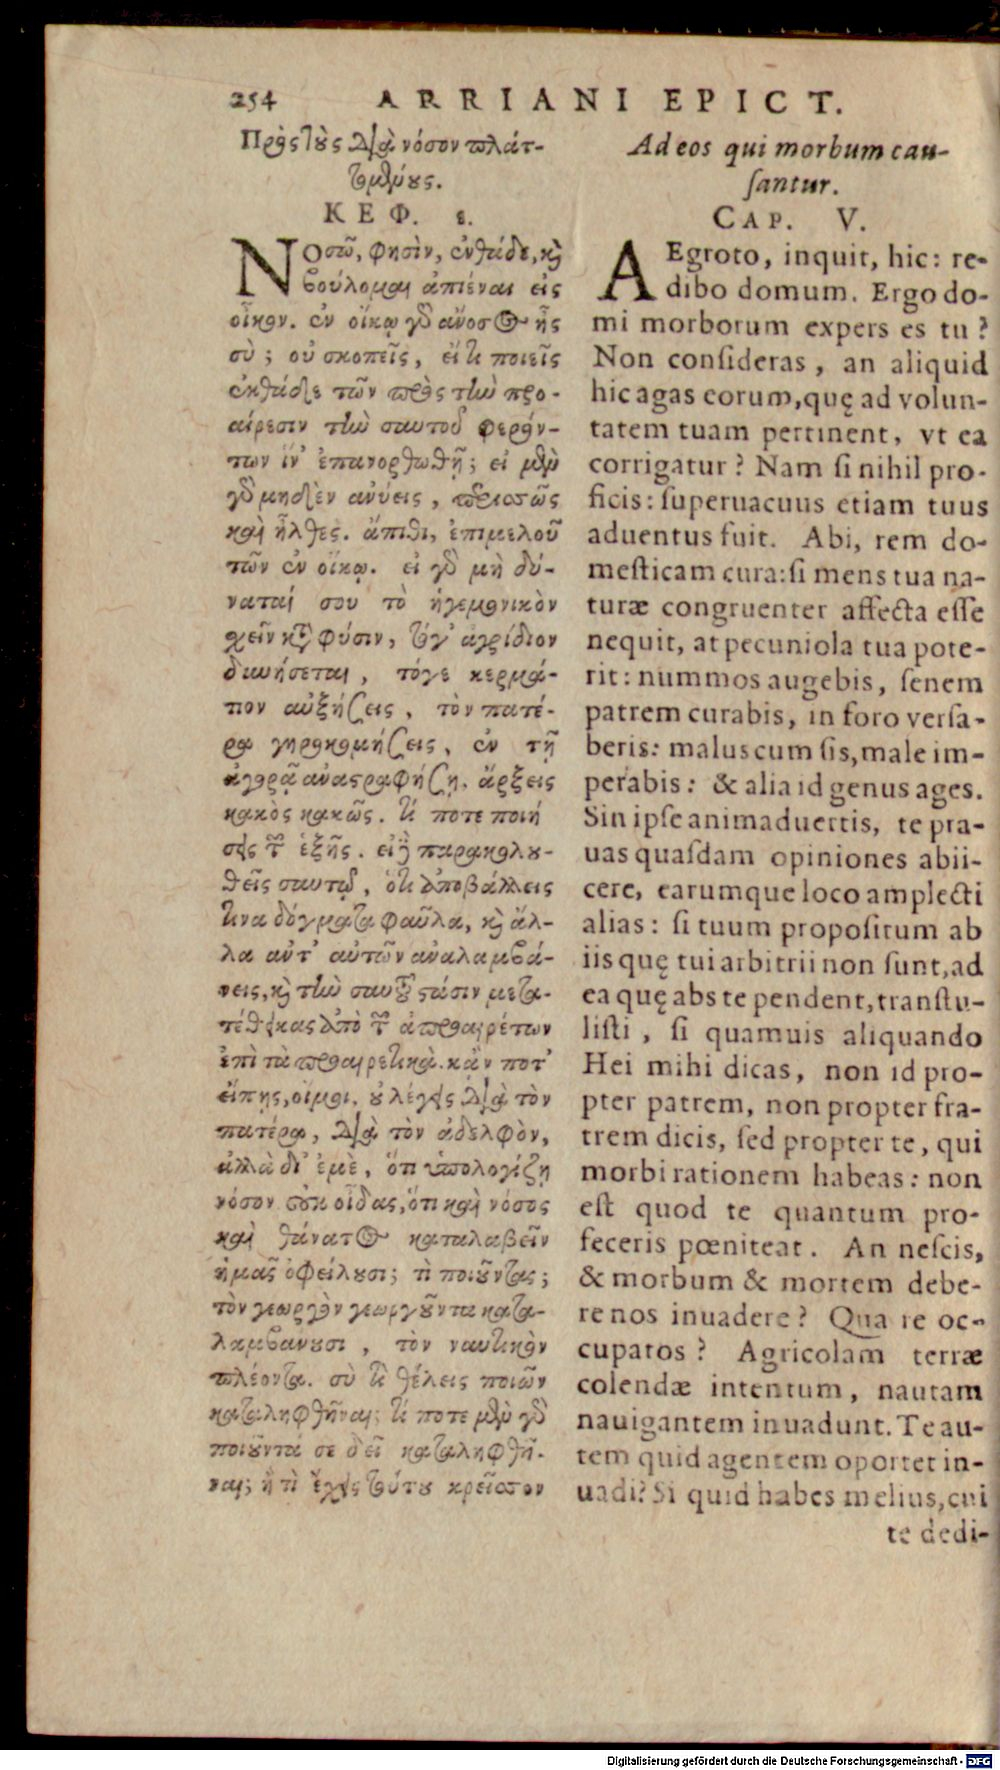 254 ARRIANI EPICT.
Πρὸς τοὺς διὰ νόσον πλατ-
τομένους.
ΚΕΦ. ε.
Νοσῶ, φησὶν, ἐνθάδε, καὶ
βούλομαι ἀπιέναι εἰς
οἶκον. ἐν οἴκῳ γὰρ ἄνοσος ἦς
σύ; οὐ σκοπεῖς, εἴ τι ποιεῖς
ἐνθάδε τῶν πρὸς τὴν προ-
αίρεσιν τὴν σαυτοῦ φερόν-
των ἵν' ἐπανορθωθῇ; εἰ μὲν
γὰρ μηδὲν ἀνύεις, περισσῶς
καὶ ἦλθες. ἄπιθι, ἐπιμελοῦ
τῶν ἐν οἴκῳ. εἰ γὰρ μὴ δύ-
ναταί σου τὸ ἡγεμονικὸν
σχεῖν κατὰ φύσιν, τό γ' ἀγρίδιον
δυνήσεται, τόγε κερμά-
τιον αὐξήσεις, τὸν πατέ-
ρα γηροκομήσεις, ἐν τῇ
ἀγορᾷ ἀναστραφήσῃ, ἄρξεις
κακὸς κακῶς. τί ποτε ποιή
σεις τῶν ἑξῆς. εἰ δὲ παρακολου-
θεῖς σαυτῷ, ὅτι ἀποβάλλεις
τινα δόγματα φαῦλα, καὶ ἄλ-
λα ἀντ' αὐτῶν ἀναλαμβά-
νεις, καὶ τὴν σαυτοῦ στάσιν μετα-
τέθεικας ἀπὸ τῶν ἀπροαιρέτων
ἐπὶ τὰ προαιρετικὰ. κἄν ποτ'
εἴπῃς, οἴμοι, οὐ λέγεις διὰ τὸν
πατέρα, διὰ τὸν ἀδελφὸν,
ἀλλὰ δι' ἐμὲ, ὅτι ὑπολογίζῃ
νόσον οὐκ οἶδας, ὅτι καὶ νόσος
καὶ θάνατος καταλαβεῖν
ἡμᾶς ὀφείλουσι; τί ποιοῦντας;
τὸν γεωργὸν γεωργοῦντα κατα-
λαμβάνουσι, τὸν ναυτικὸν
πλέοντα. σὺ τί θέλεις ποιῶν
καταληφθῆναι; τί ποτε μὲν γὰρ
ποιοῦντά σε δεῖ καταληφθῆ-
ναι; ἤ τι ἔχεις τούτου κρεῖσσον
Ad eos qui morbum cau-
santur.
CAP. V.
AEgroto, inquit, hic: re-
dibo domum. Ergo do-
mi morborum expers es tu?
Non consideras, an aliquid
hic agas eorum, quę ad volun-
tatem tuam pertinent, vt ea
corrigatur? Nam si nihil pro-
ficis: superuacuus etiam tuus
aduentus fuit. Abi, rem do-
mesticam cura: si mens tua na-
turæ congruenter affecta esse
nequit, at pecuniola tua pote-
rit: nummos augebis, senem
patrem curabis, in foro versa-
beris: malus cum sis, male im-
perabis: & alia id genus ages.
Sin ipse animaduertis, te pra-
uas quasdam opiniones abii-
cere, earumque loco amplecti
alias: si tuum propositum ab
iis quę tui arbitrii non sunt, ad
ea quę abs te pendent, transtu-
listi, si quamuis aliquando
Hei mihi dicas, non id pro-
pter patrem, non propter fra-
trem dicis, sed propter te, qui
morbi rationem habeas: non
est quod te quantum pro-
feceris pœniteat. An nescis,
& morbum & mortem debe-
re nos inuadere? Qua re oc-
cupatos? Agricolam terræ
colendæ intentum, nautam
nauigantem inuadunt. Te au-
tem quid agentem oportet in-
uadi? Si quid habes melius, cui
te dedi-
Digitalisierung gefördert durch die Deutsche Forschungsgemeinschaft - DFG